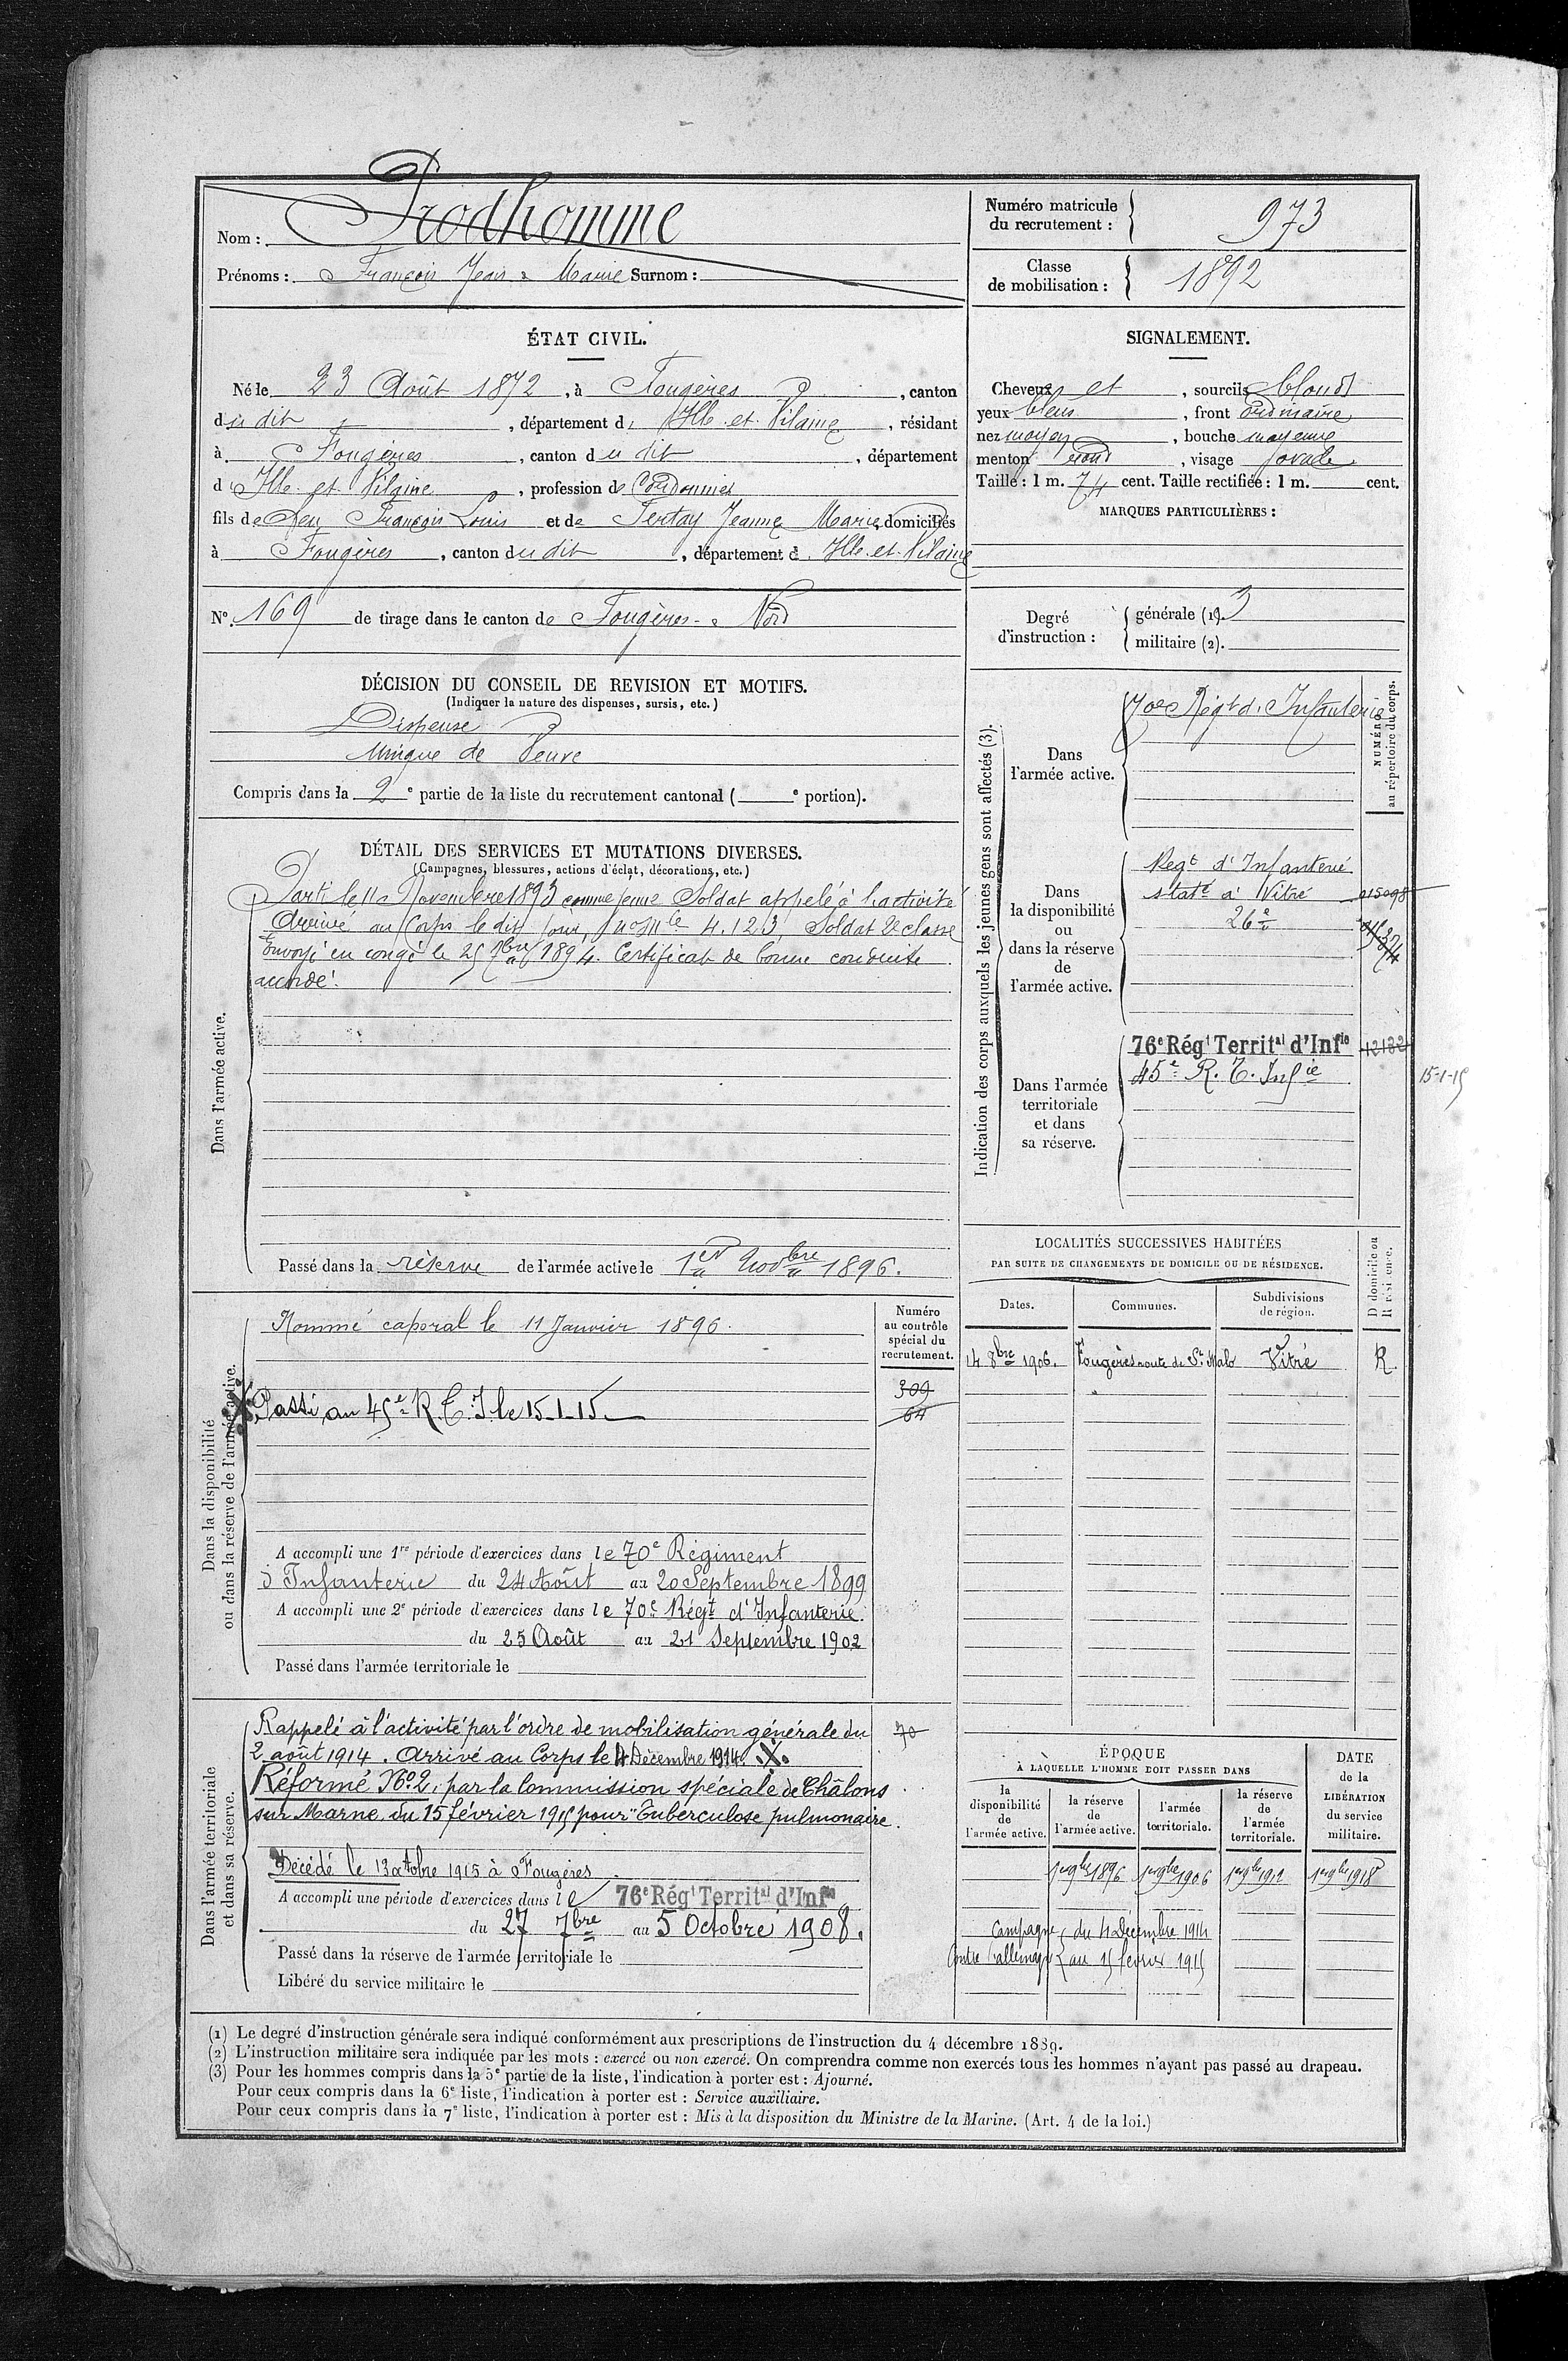 Nom : Prodhomme
Prénoms : François Jean Marie Surnom :
Numéro matricule du recrutement : 973
Classe de mobilisation : 1892
ÉTAT CIVIL.
Né le 23 Août 1872, à Fougères, canton
du dit, département d' Ille et Vilaine, résidant
à Fougères, canton du dit, département
d' Ille et Vilaine, profession de Cordonnier
fils de feu François Louis et de Tertay Jeanne Marie, domiciliés
à Fougères, canton du dit, département d' Ille et Vilaine
N° 169 de tirage dans le canton de Fougères - Nord
SIGNALEMENT.
Cheveux et, sourcils blonds
yeux bleus, front ordinaire
nez moyen, bouche moyenne
menton rond, visage ovale
Taille : 1 m. 74 cent. Taille rectifiée : 1 m. cent.
MARQUES PARTICULIÈRES :
Degré d'instruction : générale (1). 3
militaire (2).
DÉCISION DU CONSEIL DE REVISION ET MOTIFS.
(Indiquer la nature des dispenses, sursis, etc.)
Dispensé
Unique de Veuve
Compris dans la 2e partie de la liste du recrutement cantonal ( e portion).
DÉTAIL DES SERVICES ET MUTATIONS DIVERSES.
(Campagnes, blessures, actions d'éclat, décorations, etc.)
Dans l'armée active.
Parti le 11 Novembre 1893 comme jeune Soldat appelé à l'activité
Arrivé au Corps le dit jour, No Mle 4.123, Soldat 2e classe
Envoyé en congé le 25 7bre 1894. Certificat de bonne conduite
accordé.
Passé dans la réserve de l'armée active le 1er Novbre 1896.
Indication des corps auxquels les jeunes gens sont affectés (3).
NUMÉRO au répertoire du corps.
Dans l'armée active.
70e Régt d'Infanterie
Dans la disponibilité ou dans la réserve de l'armée active.
Regt d'Infanterie
statt à Vitré
26e
015098
Dans l'armée territoriale et dans sa réserve.
76e Régt Territal d'Infie 12132
45e R. T. Infie
15-1-15
LOCALITÉS SUCCESSIVES HABITÉES
PAR SUITE DE CHANGEMENTS DE DOMICILE OU DE RÉSIDENCE.
Dates. Communes. Subdivisions de région. D domicile ou R résidence.
14 8bre 1906. Fougères route de St Malo Vitré R
Dans la disponibilité ou dans la réserve de l'armée active.
Numéro au contrôle spécial du recrutement.
Nommé caporal le 11 Janvier 1896.
309
64
Passé au 45e R. T. I le 15-1-15
A accompli une 1re période d'exercices dans le 70e Régiment
d'Infanterie du 24 Août au 20 Septembre 1899
A accompli une 2e période d'exercices dans le 70e Régt d'Infanterie
du 25 Août au 21 Septembre 1902
Passé dans l'armée territoriale le
Dans l'armée territoriale et dans sa réserve.
Rappelé à l'activité par l'ordre de mobilisation générale du
2 août 1914. Arrivé au Corps le 4 Décembre 1914. .X.
70
Réformé No 2, par la Commission spéciale de Châlons
sur Marne du 15 février 1915 pour "Tuberculose pulmonaire.
Décédé le 13 octobre 1915 à Fougères
A accompli une période d'exercices dans le 76e Régt Territal d'Infie
du 27 7bre au 5 Octobre 1908.
Passé dans la réserve de l'armée territoriale le
Libéré du service militaire le
ÉPOQUE
À LAQUELLE L'HOMME DOIT PASSER DANS
la disponibilité de l'armée active. la réserve de l'armée active. l'armée territoriale. la réserve de l'armée territoriale.
DATE de la LIBÉRATION du service militaire.
1er 9bre 1896 1er 9bre 1906 1er 9bre 1912 1er 9bre 1918
Campagne du 4 Décembre 1914
contre l'allemagne au 15 février 1915
(1) Le degré d'instruction générale sera indiqué conformément aux prescriptions de l'instruction du 4 décembre 1889.
(2) L'instruction militaire sera indiquée par les mots : exercé ou non exercé. On comprendra comme non exercés tous les hommes n'ayant pas passé au drapeau.
(3) Pour les hommes compris dans la 5e partie de la liste, l'indication à porter est : Ajourné.
Pour ceux compris dans la 6e liste, l'indication à porter est : Service auxiliaire.
Pour ceux compris dans la 7e liste, l'indication à porter est : Mis à la disposition du Ministre de la Marine. (Art. 4 de la loi.)